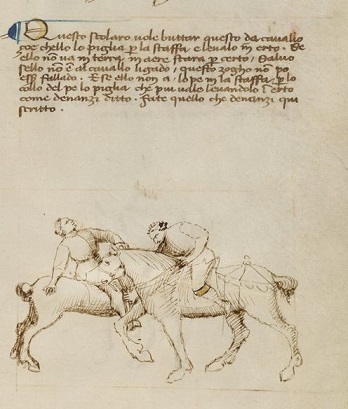 Questo scolaro vole buttar questo da cavallo
çoe chello lo piglia p la staffa e levalo in erto. Se
ello no va in terra, in aere stara p certo, Salvo
sello no e al cavallo ligado, questo zogho no po
esser fallado. E se ello non a lo pe in la staffa, p lo
collo del pe lo piglia che piu vale levandolo in erto
come denanzi ditto. Fate quello che denanzi qui
scritto.